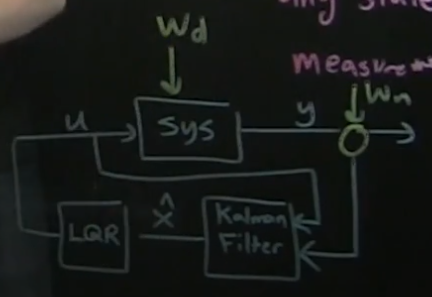 Wd
measure
Wn
u
sys
y
LQR
x̂
Kalman
Filter